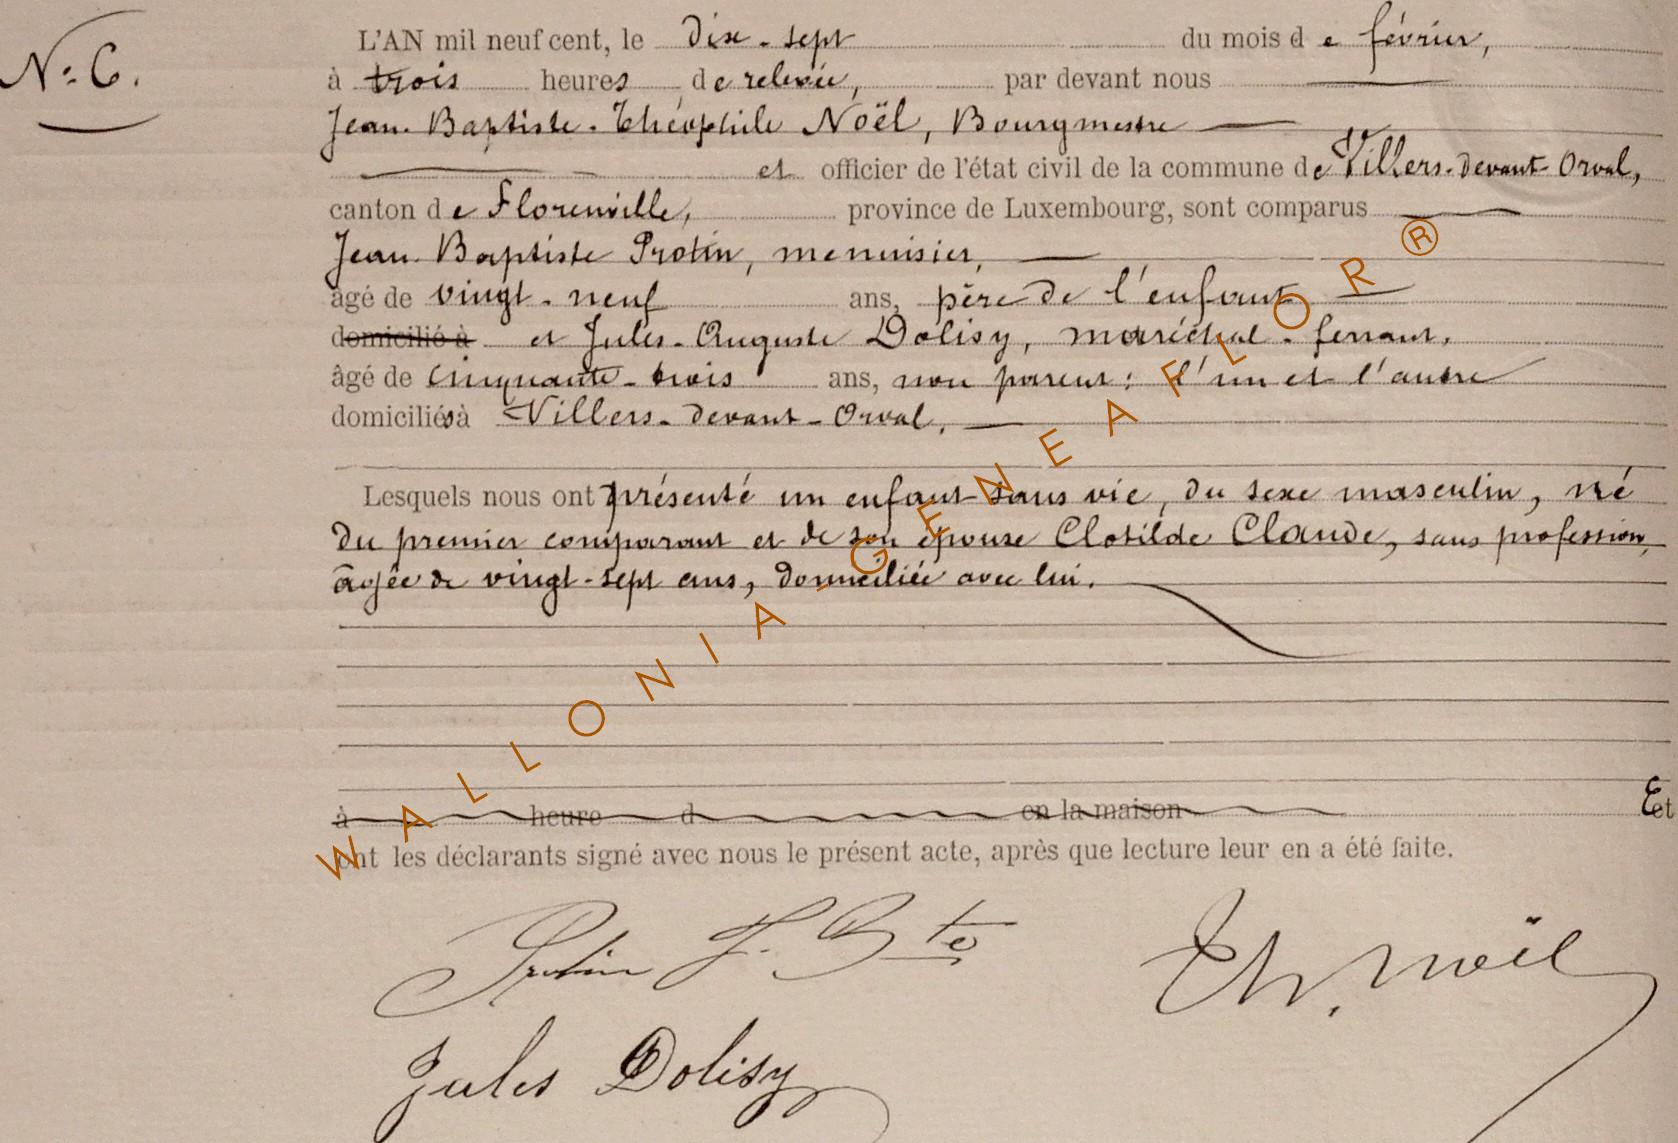 N° 6.
L'AN mil neuf cent, le dix-sept du mois de février,
à trois heures de relevée, par devant nous
Jean-Baptiste-Théophile Noël, Bourgmestre
et officier de l'état civil de la commune de Villers-devant-Orval,
canton de Florenville, province de Luxembourg, sont comparus
Jean-Baptiste Protin, menuisier,
âgé de vingt-neuf ans, père de l'enfant
domicilié à et Jules-Auguste Dolisy, maréchal-ferrant,
âgé de cinquante-trois ans, non parent; l'un et l'autre
domiciliés à Villers-devant-Orval.
Lesquels nous ont présenté un enfant sans vie, du sexe masculin, né
du premier comparant et de son épouse Clotilde Claude, sans profession,
âgée de vingt-sept ans, domiciliée avec lui.
à heure d en la maison Et
ont les déclarants signé avec nous le présent acte, après que lecture leur en a été faite.
Protin J. Bte
Th. Noël
Jules Dolisy
WALLONIA-GENEAFLOR®